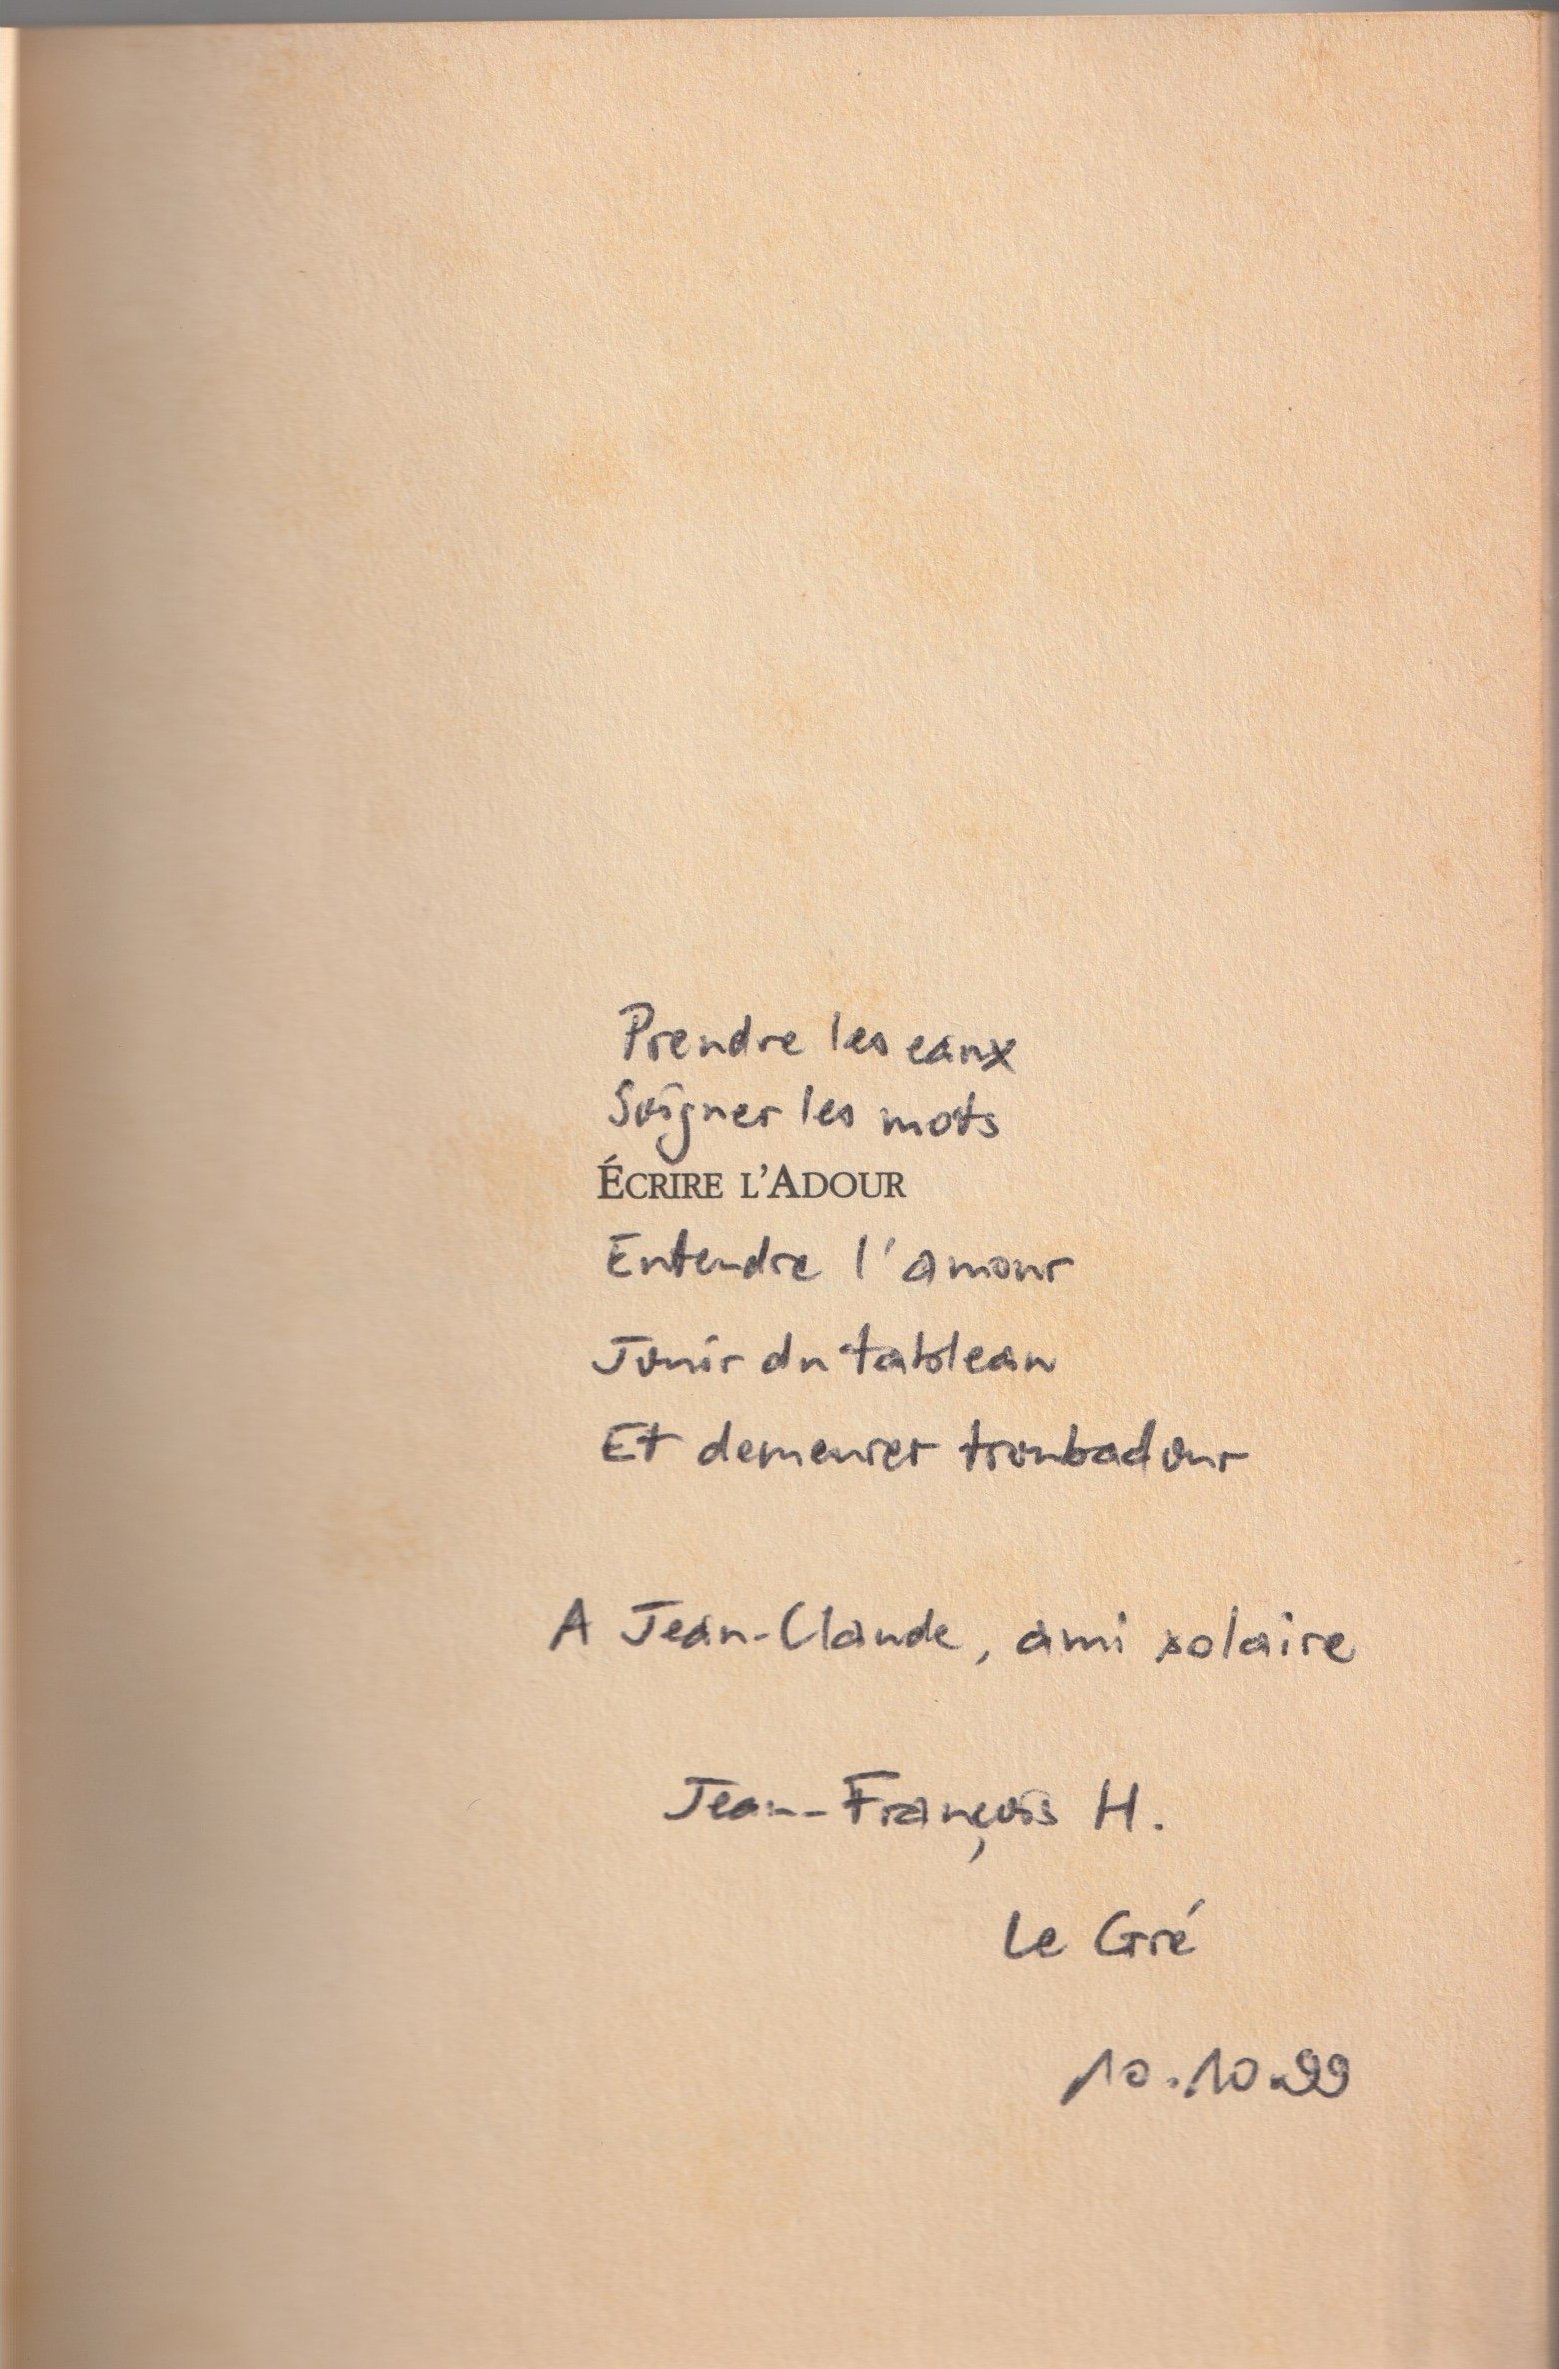 Prendre les eaux
Soigner les mots
ÉCRIRE L'ADOUR
Entendre l'amour
Jouir du tableau
Et demeurer troubadour
A Jean-Claude, ami solaire
Jean-François H.
Le Gré
10.10.99